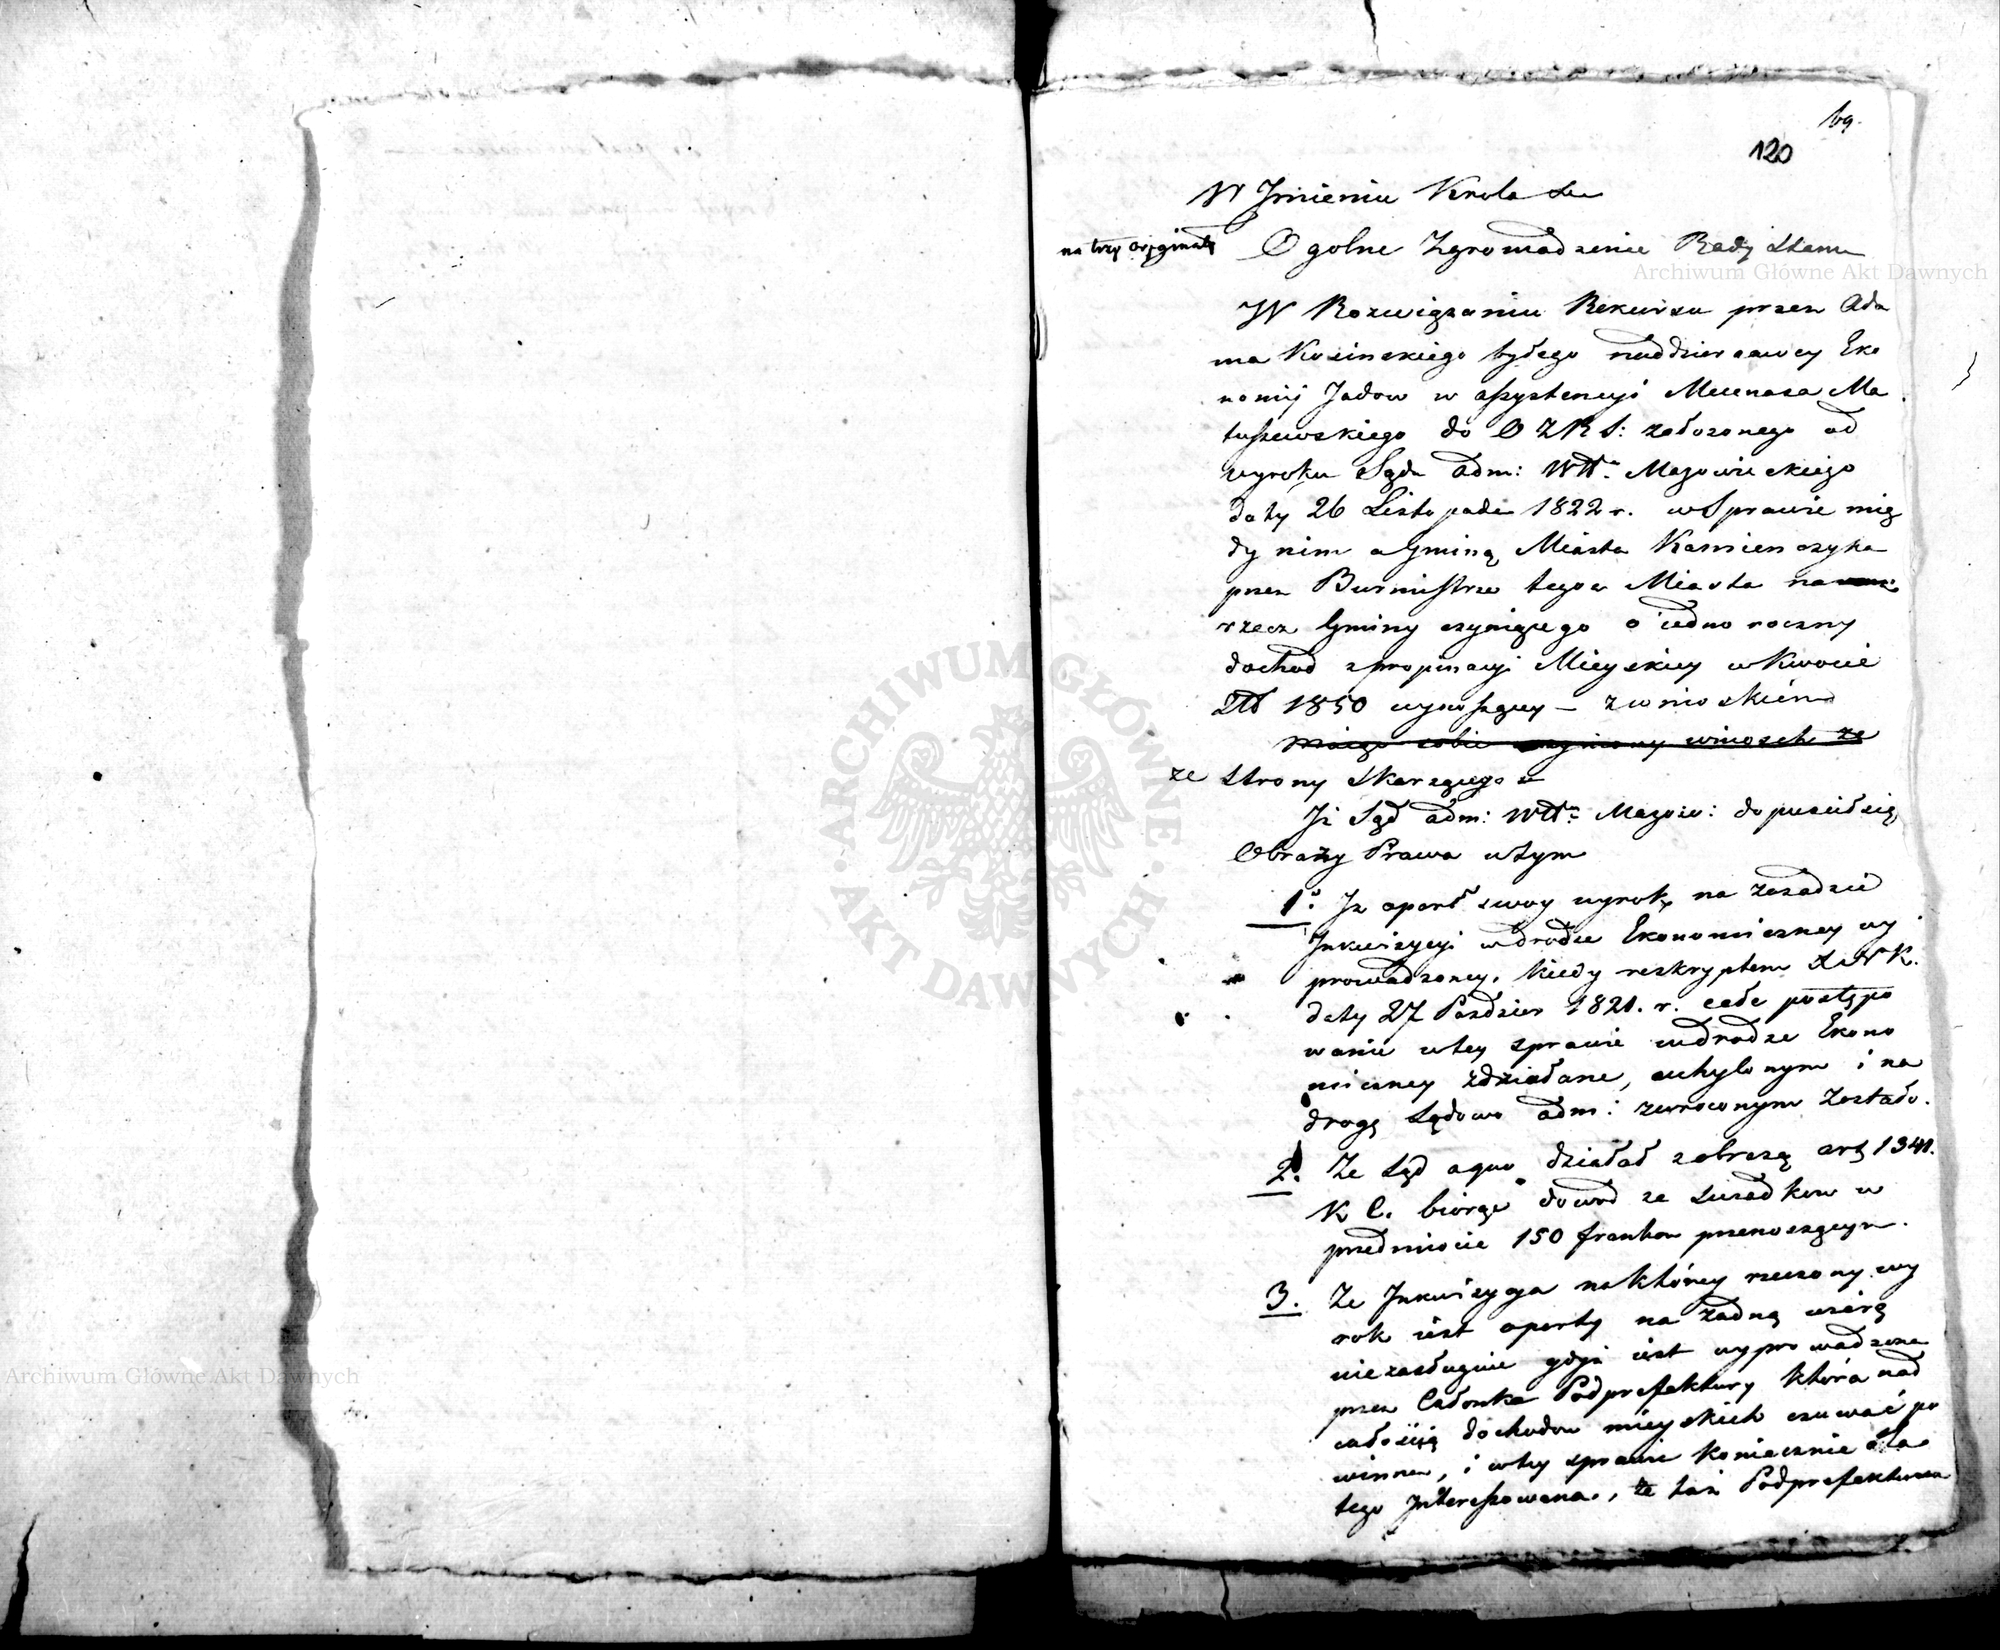 69.
120
W Jmieniu Krola &c
na trzy oryginały
Ogolne Zgromadzenie Rady Stanu
W Rozwiązaniu Rekursu przez Ada
ma Kosinskiego byłego naddzierzawcy Eko
nomij Jadow w assystencyi Mecenasa Ma
tuszewskiego do O Z R S: założonego od
wyroku Sądu adm: Wtta Mazowieckiego
daty 26 Listopada 1822 r. w Sprawie mię
dy nim a Gminą Miasta Kamienczyka
przez Burmistrza tegoż Miasta na
rzecz Gminy czyniącego o iedno roczny
dochod z propinacyi Mieyskiey w kwocie
Złł 1850 wynoszący – z wnioskiem
sobie uczyniony wniosek ze
ze Strony Skarzącego &
Jż Sąd adm: Wtta Mazow: dopuscił się
Obrazy Prawa w tym
1° Jż oparł swoy wyrok na zasadzie
Jnkwizycyi w drodze Ekonomiczney wy
prowadzoney, kiedy reskryptem X N K.
daty 27 Pazdzier 1821. r. całe postępo
wanie w tey sprawie w drodze Ekono
miczney zdziałane, uchylonym i na
drogę Sądowo adm: zwroconym zostało.
2. Ze Sąd a quo działał z obrazą art 1341.
K C. biorąc dowod ze Swiadkow w
przedmiocie 150 frankow przenoszącym.
3. Ze Jnkwizycya na którey rzeczony wy
rok iest oparty na żadną wiarę
nie zasługuie gdyż iest wyprowadzona
przez Członka Podprefektury która nad
całością dochodow mieyskich czuwać po
winna, i w tey sprawie koniecznie dla
tego Jnteressowana, że taż Podprefektura
Archiwum Główne Akt Dawnych
Archiwum Główne Akt Dawnych
ARCHIWUM GŁÓWNE · AKT DAWNYCH ·